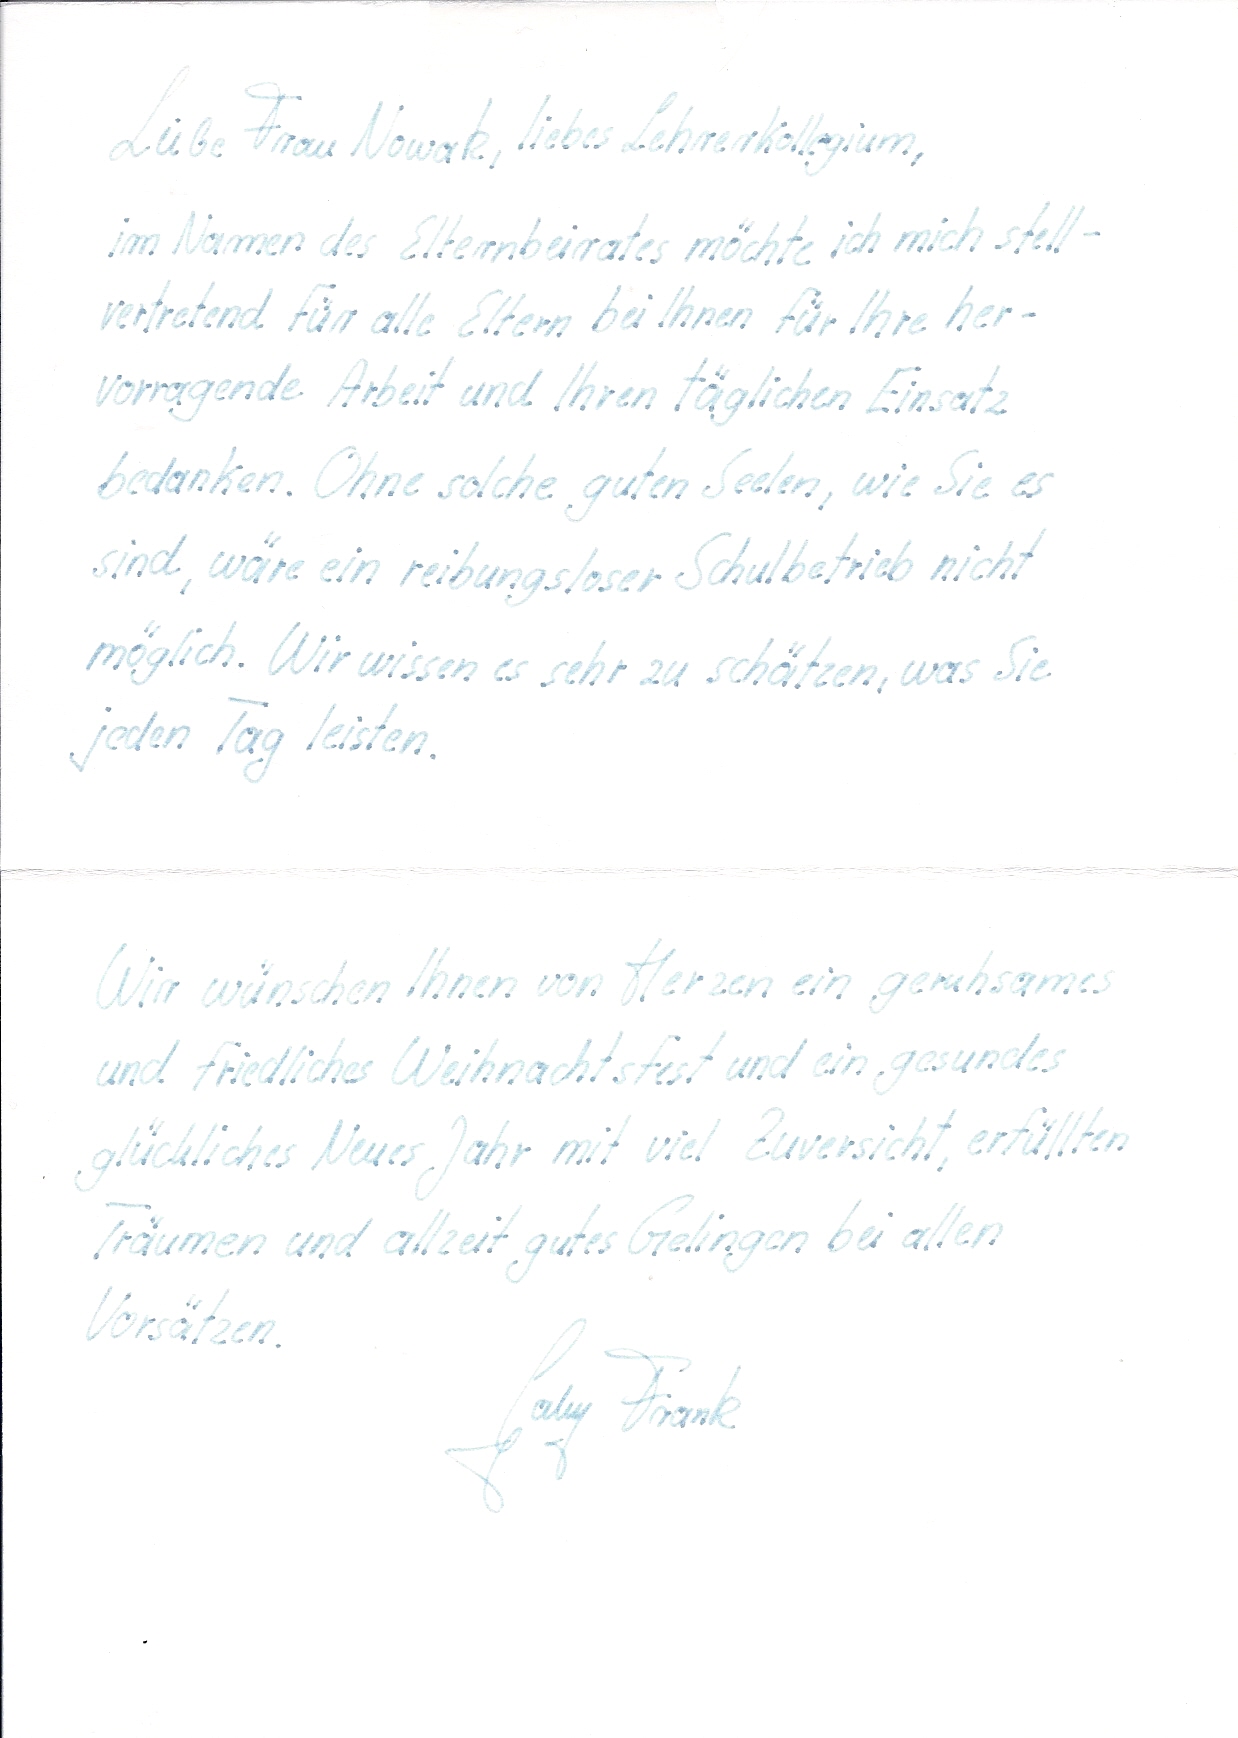 Liebe Frau Nowak, liebes Lehrerkollegium,
im Namen des Elternbeirates möchte ich mich stell-
vertretend für alle Eltern bei Ihnen für Ihre her-
vorragende Arbeit und Ihren täglichen Einsatz
bedanken. Ohne solche guten Seelen, wie Sie es
sind, wäre ein reibungsloser Schulbetrieb nicht
möglich. Wir wissen es sehr zu schätzen, was Sie
jeden Tag leisten.
Wir wünschen Ihnen von Herzen ein geruhsames
und friedliches Weihnachtsfest und ein gesundes
glückliches Neues Jahr mit viel Zuversicht, erfüllten
Träumen und allzeit gutes Gelingen bei allen
Vorsätzen.
Gaby Frank